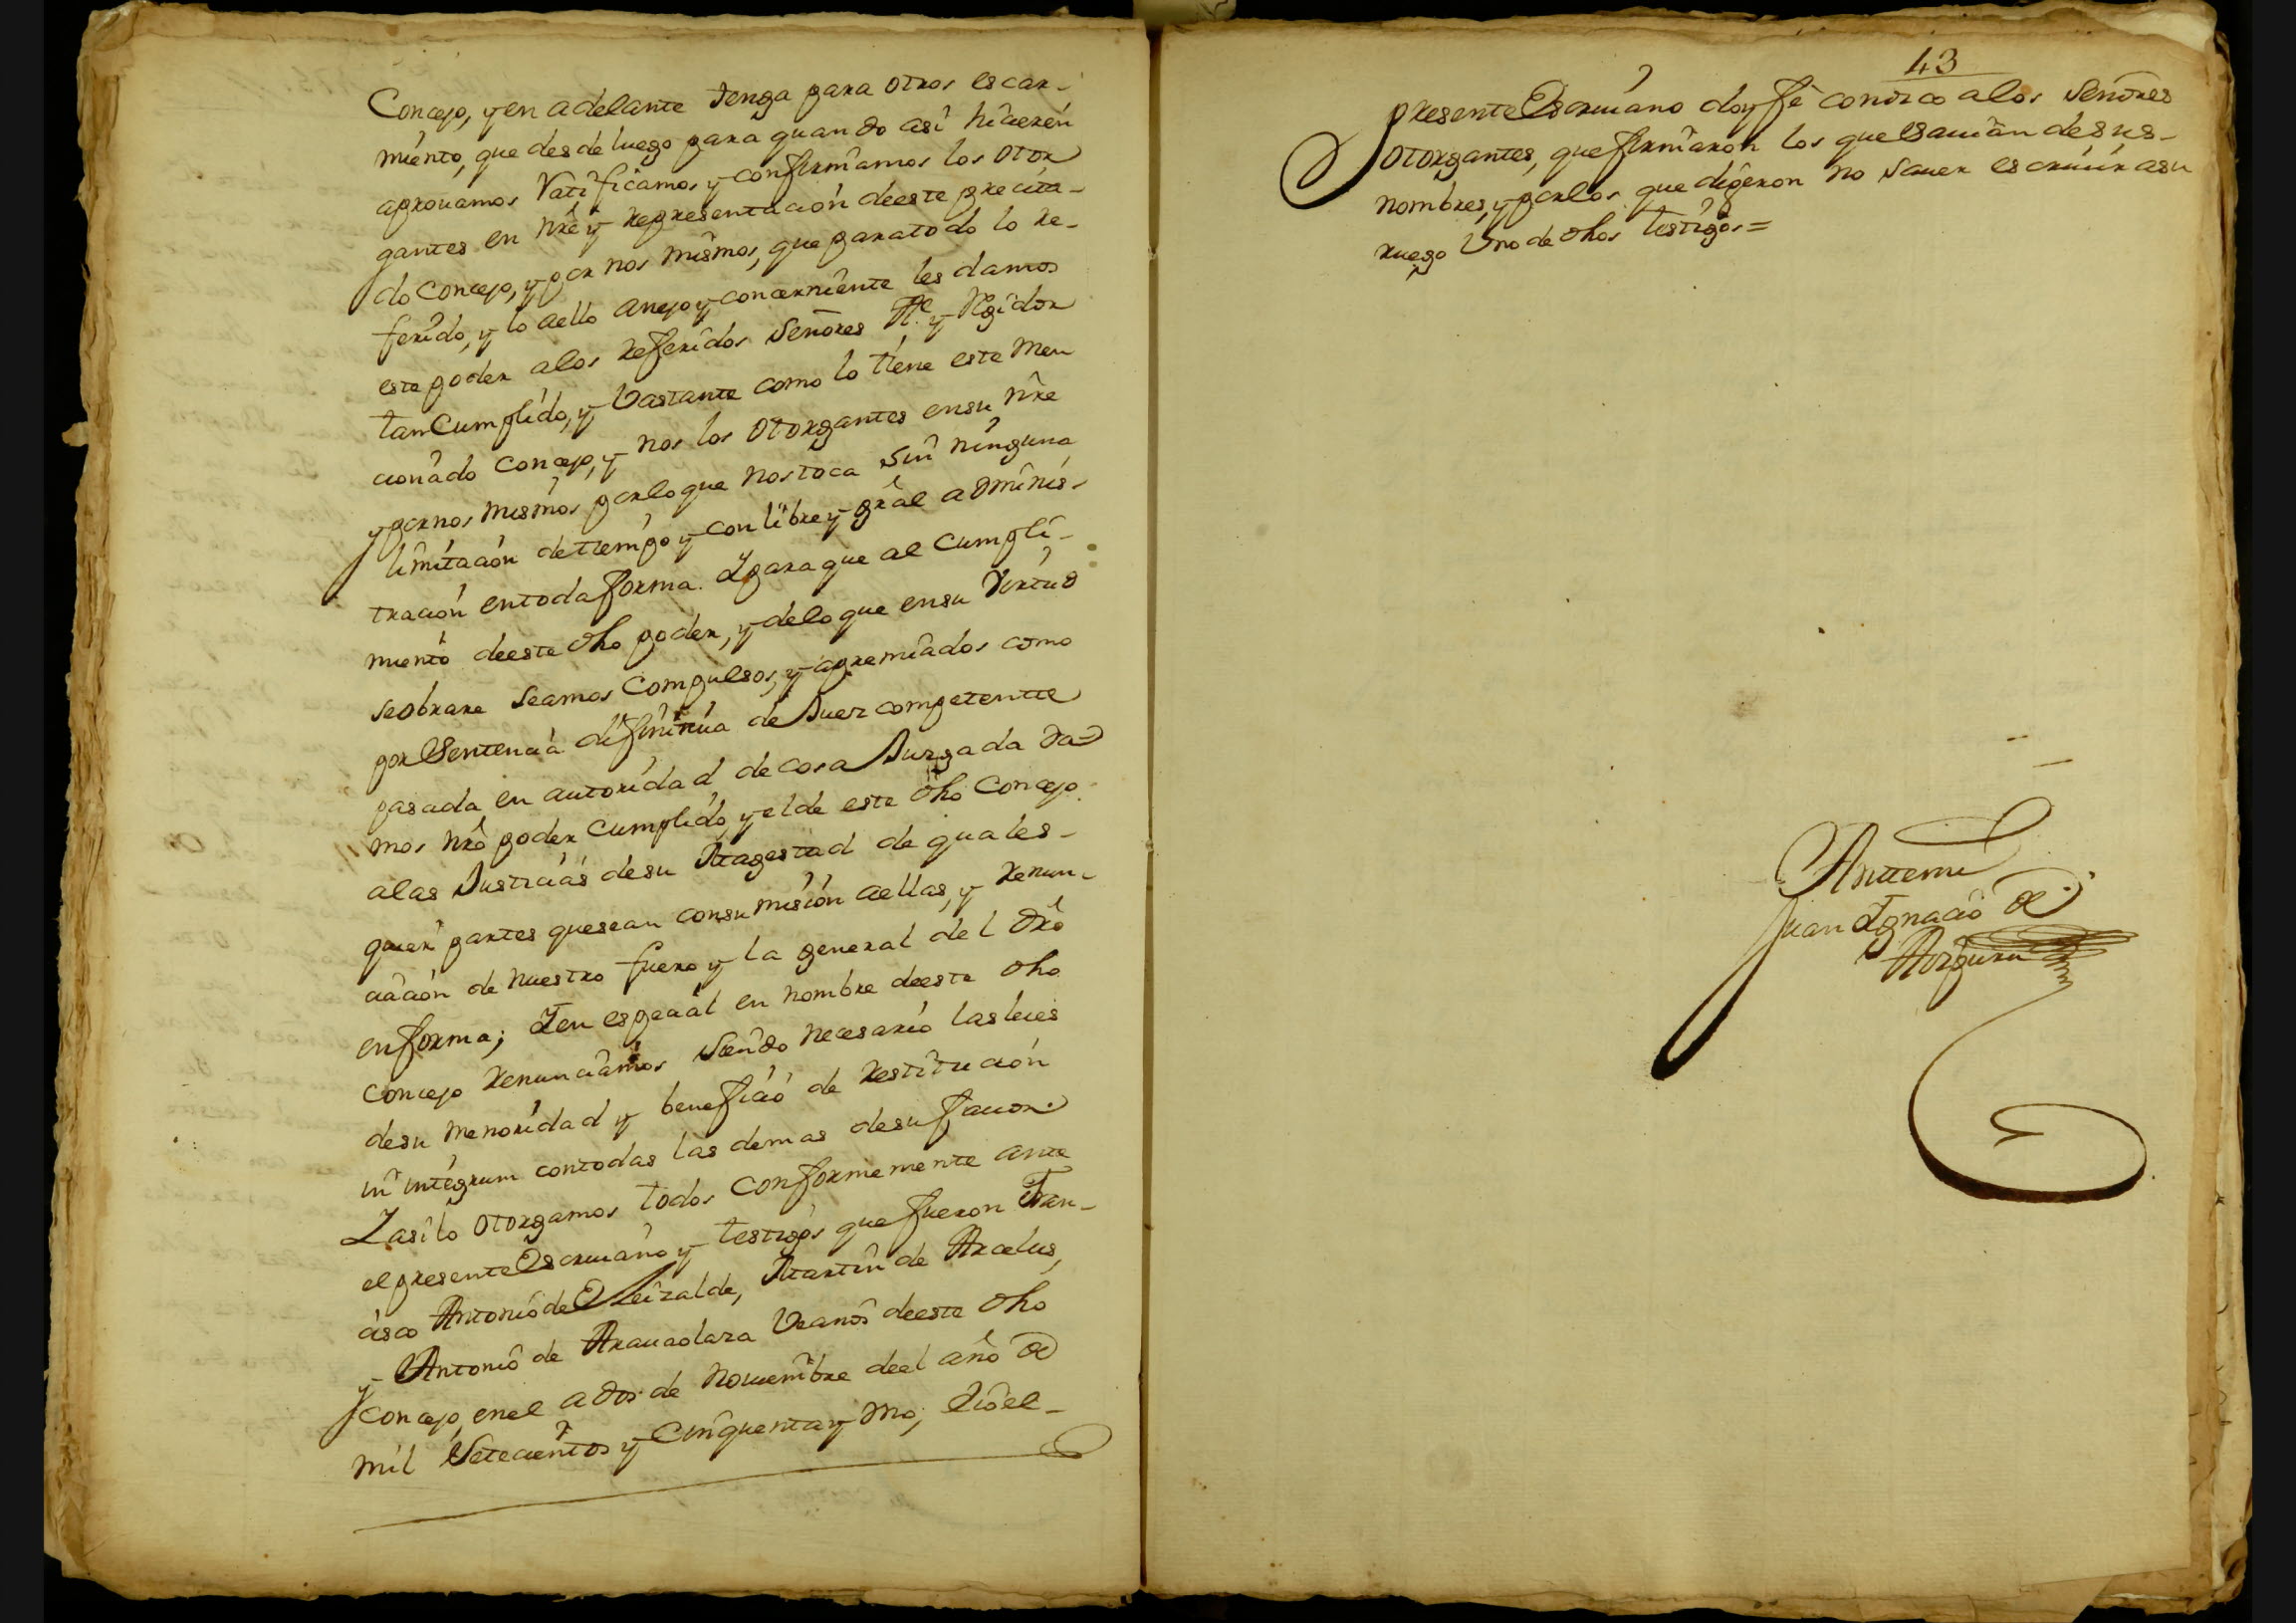 Concejo, y en adelante tenga para otros escar-
miento, que desde luego para quando asi hicieren
aprouamos Ratificamos y confirmamos los otor
gantes en nrê y representacion deeste precita-
do Concejo, y por nos mismos, que para todo lo re-
ferido, y lo aello anejo y concerniente les damos
este poder alos referidos Señores Alc.e y Regidor
tan Cumplido, y Vastante como lo tiene este men
cionado Concejo, y nos los otorgantes ensu nre
y por nos mismos por lo que nos toca sin ninguna
limitacion detiempo y con libre y grâl adminis-
tracion entoda forma. Y para que al cumpli-
miento deeste dho poder, y delo que ensu Virtud
se obrare seamos Compulsos, y apremiados como
por Sentencia difinitiua de Juez competente
pasada en autoridad de cosa Juzgada da=
mos nrô poder Cumplido, y el de este dho Concejo
alas Justicias desu Magestad de quales-
quier partes quesean consumision aellas, y renun-
ciacion de nuestro fuero y la general del drô
enforma; Y en especial en nombre deeste dho
Concejo renunciamos siendo necesario las leies
desu menoridad y beneficio de restitucion
in integrum contodas las demas desu fauor.
Y asi lo otorgamos todos conformemente ante
el presente Escriuano y testigos que fueron Fran-
cisco Antonio de Eleizalde, Martin de Arcelus,
y Antonio de Arauaolaza Vecinos deeste dho
Concejo, enel a dos de Nouiembre deel año de
mil Setecientos y Cinquenta y Uno; Y io el-
43
presente Escriuano doy fe conozco alos Señores
otorgantes, que firmaron los que sauian desus-
nombres, y por los que digeron no sauer escriuir asu
ruego Uno de dhos testigos=
Anttemi
Juan Ignacio de